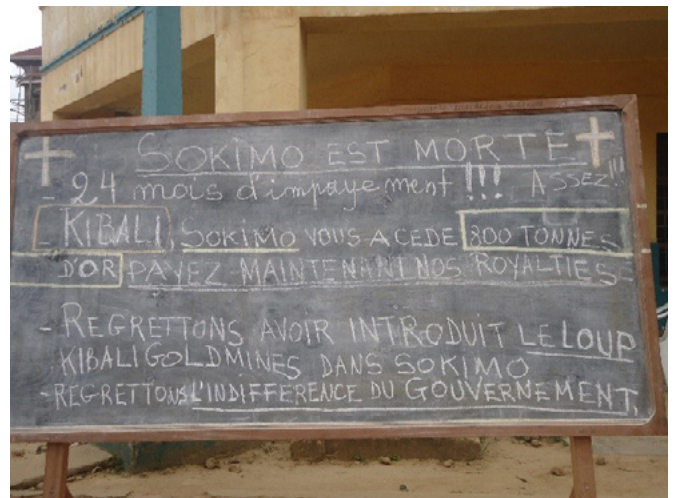 SOKIMO EST MORTE
- 24 mois d'impayement !!! ASSEZ!!!
- KIBALI, SOKIMO VOUS A CEDE 800 TONNES
D'OR PAYEZ MAINTENANT NOS ROYALTIES
- REGRETTONS AVOIR INTRODUIT LE LOUP
KIBALI GOLDMINES DANS SOKIMO
- REGRETTONS L'INDIFFERENCE DU GOUVERNEMENT.